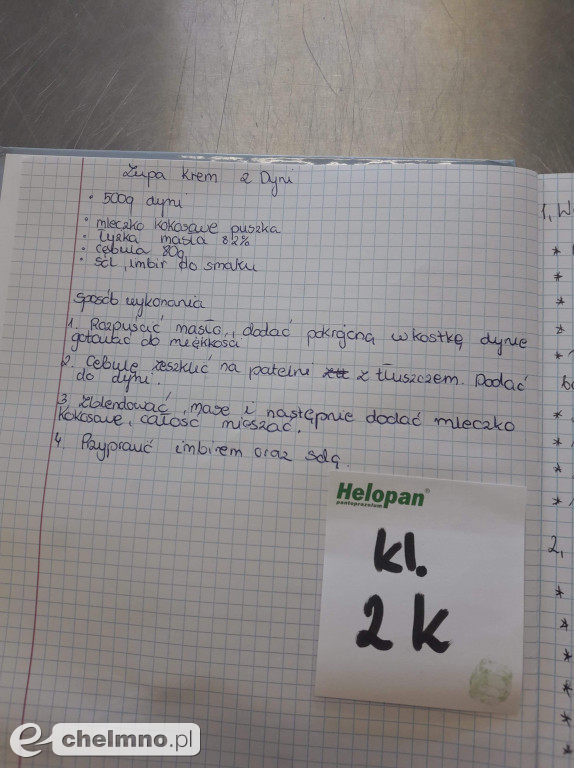 Zupa krem z Dyni
• 500g dyni
• mleczko kokosowe puszka
• Łyżka masła 82%
• cebula 80g
• sól, imbir do smaku
sposób wykonania
1. Rozpuścić masło, dodać pokrojoną w kostkę dynię
gotować do miękkości
2. Cebulę zeszklić na patelni z tłuszczem. Dodać
do dyni.
3. zblendować, masę i następnie dodać mleczko
kokosowe, całość mieszać.
4. Przyprawić imbirem oraz solą.
Helopan®
pantoprazolum
kl.
2 k
1, W
2,
echelmno.pl